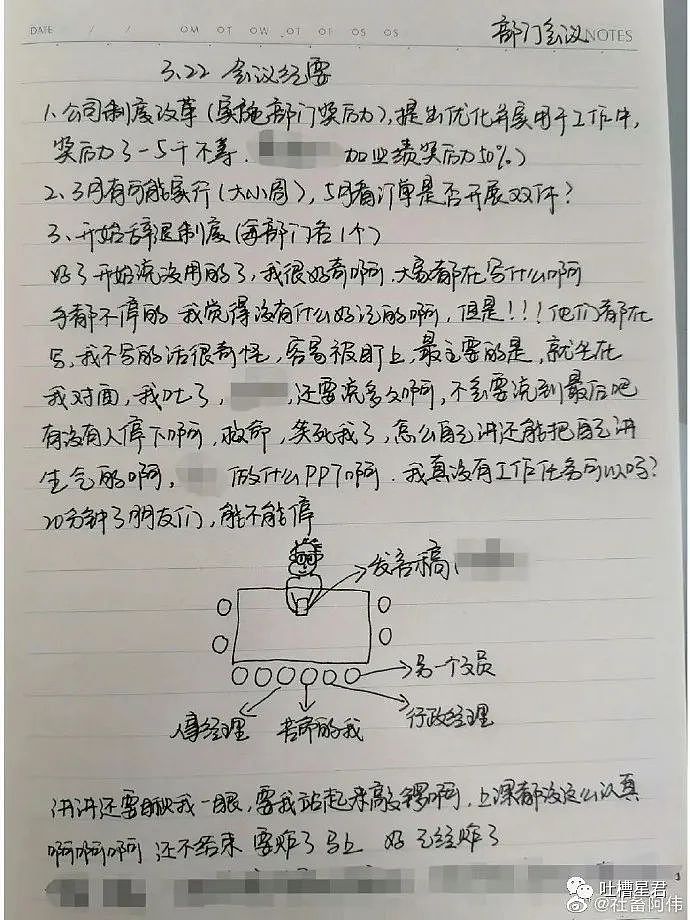 DATE / / OM OT OW OT OF OS OS
部门会议 NOTES
3.22 会议纪要
1、公司制度改革(实施部门奖励),提出优化并实用于工作中,
奖励3-5千不等. 加业绩奖励50%)
2、3月有可能实行(大小周),5月看订单是否开展双休?
3、开始辞退制度(每部门各1个)
好了开始说没用的了,我很好奇啊,大家都在写什么啊
手都不停的 我觉得没有什么好记的啊,但是!!!他们都在
写,我不写的话很奇怪,容易被盯上,最主要的是,就坐在
我对面,我吐了, ,还要说多久啊,不会要说到最后吧
有没有人停下啊,救命,笑死我了,怎么自己讲还能把自己讲
生气的啊, 做什么PPT啊.我真没有工作任务可以吗?
20分钟了朋友们,能不能停
发言稿
另一个文员
人事经理 苦命的我 行政经理
讲讲还要瞅我一眼,要我站起来敲锣啊,上课都没这么认真
啊啊啊啊 还不结束 要炸了 马上 好 已经炸了
吐槽星君
@社畜阿伟